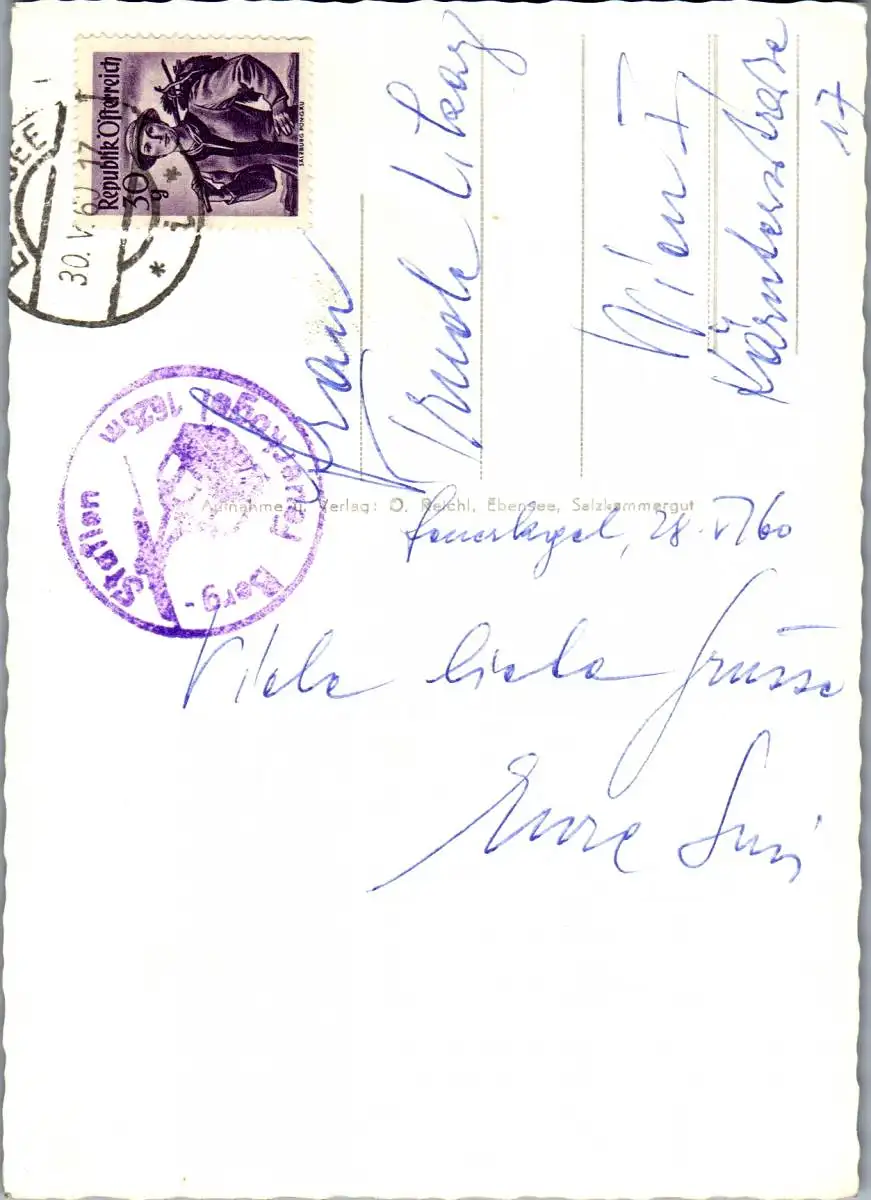 Republik Österreich
30 g
SALZBURG PONGAU
30. V. 60 17
Berg-
Station
Feuerkogel 1625m
Frau
Trude Likay
Wien I
Kärntnerstrasse
17
Aufnahme u. Verlag: O. Reichl, Ebensee, Salzkammergut
Feuerkogel, 28. V 60
Viele liebe Grüsse
Eure Susi